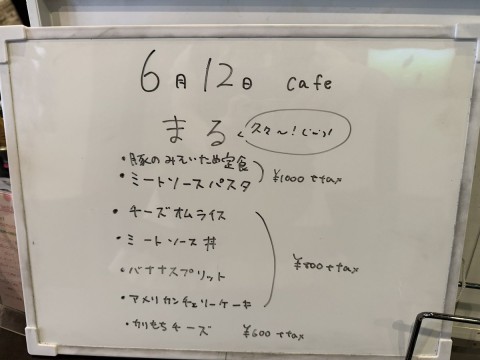 6月12日 cafe
まる
久々〜!
・豚のみそいため定食
・ミートソースパスタ
¥1000+tax
・チーズオムライス
・ミートソース丼
・バナナスプリット
¥800+tax
・アメリカンチェリーケーキ
・カリもちチーズ ¥600+tax